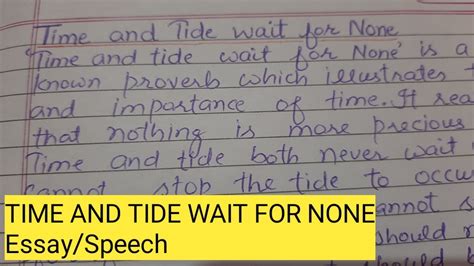 Time and Tide wait for None
'Time and tide wait for None' is a
known proverb which illustrates
and importance of time. It
that nothing is more precious
Time and tide both never wait
cannot stop the tide to
TIME AND TIDE WAIT FOR NONE
Essay/Speech
annot
should
should